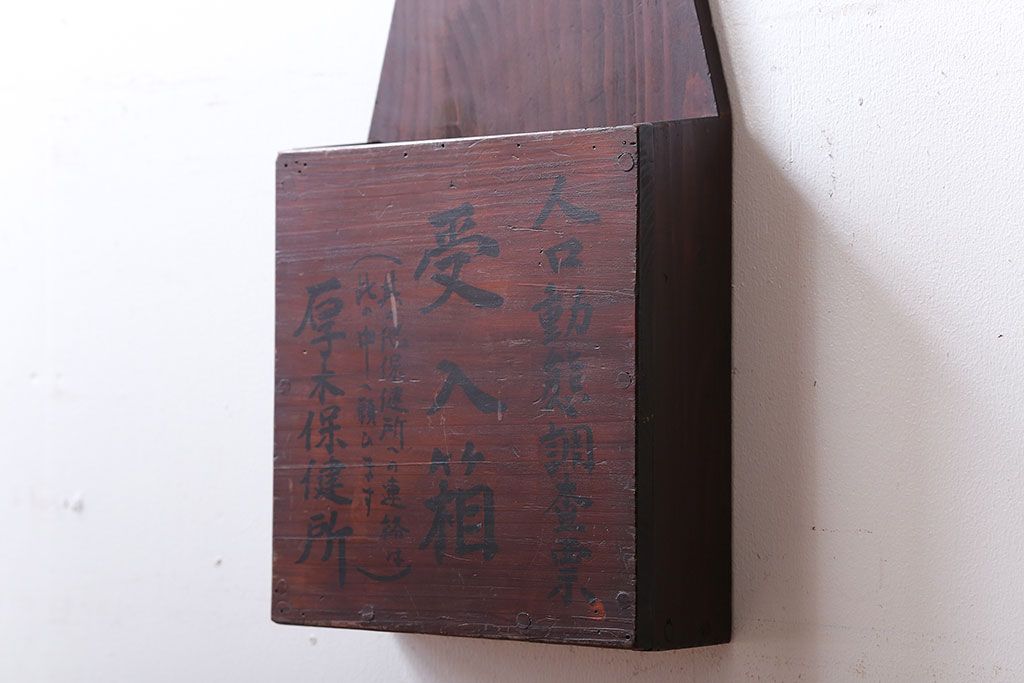 人口動態調査票
受入箱
(其ノ他保健所への連絡は
此の中へ願ひます)
厚木保健所